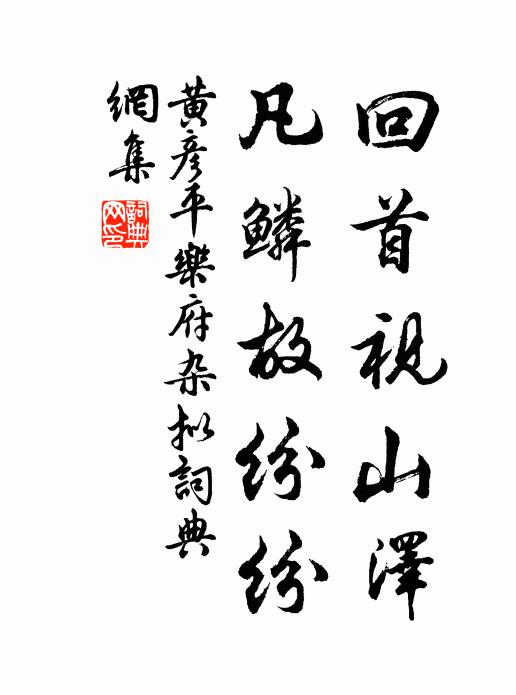 回首視山澤
凡鱗故紛紛
黃彥平樂府杂拟詞典
網集
詞典網印